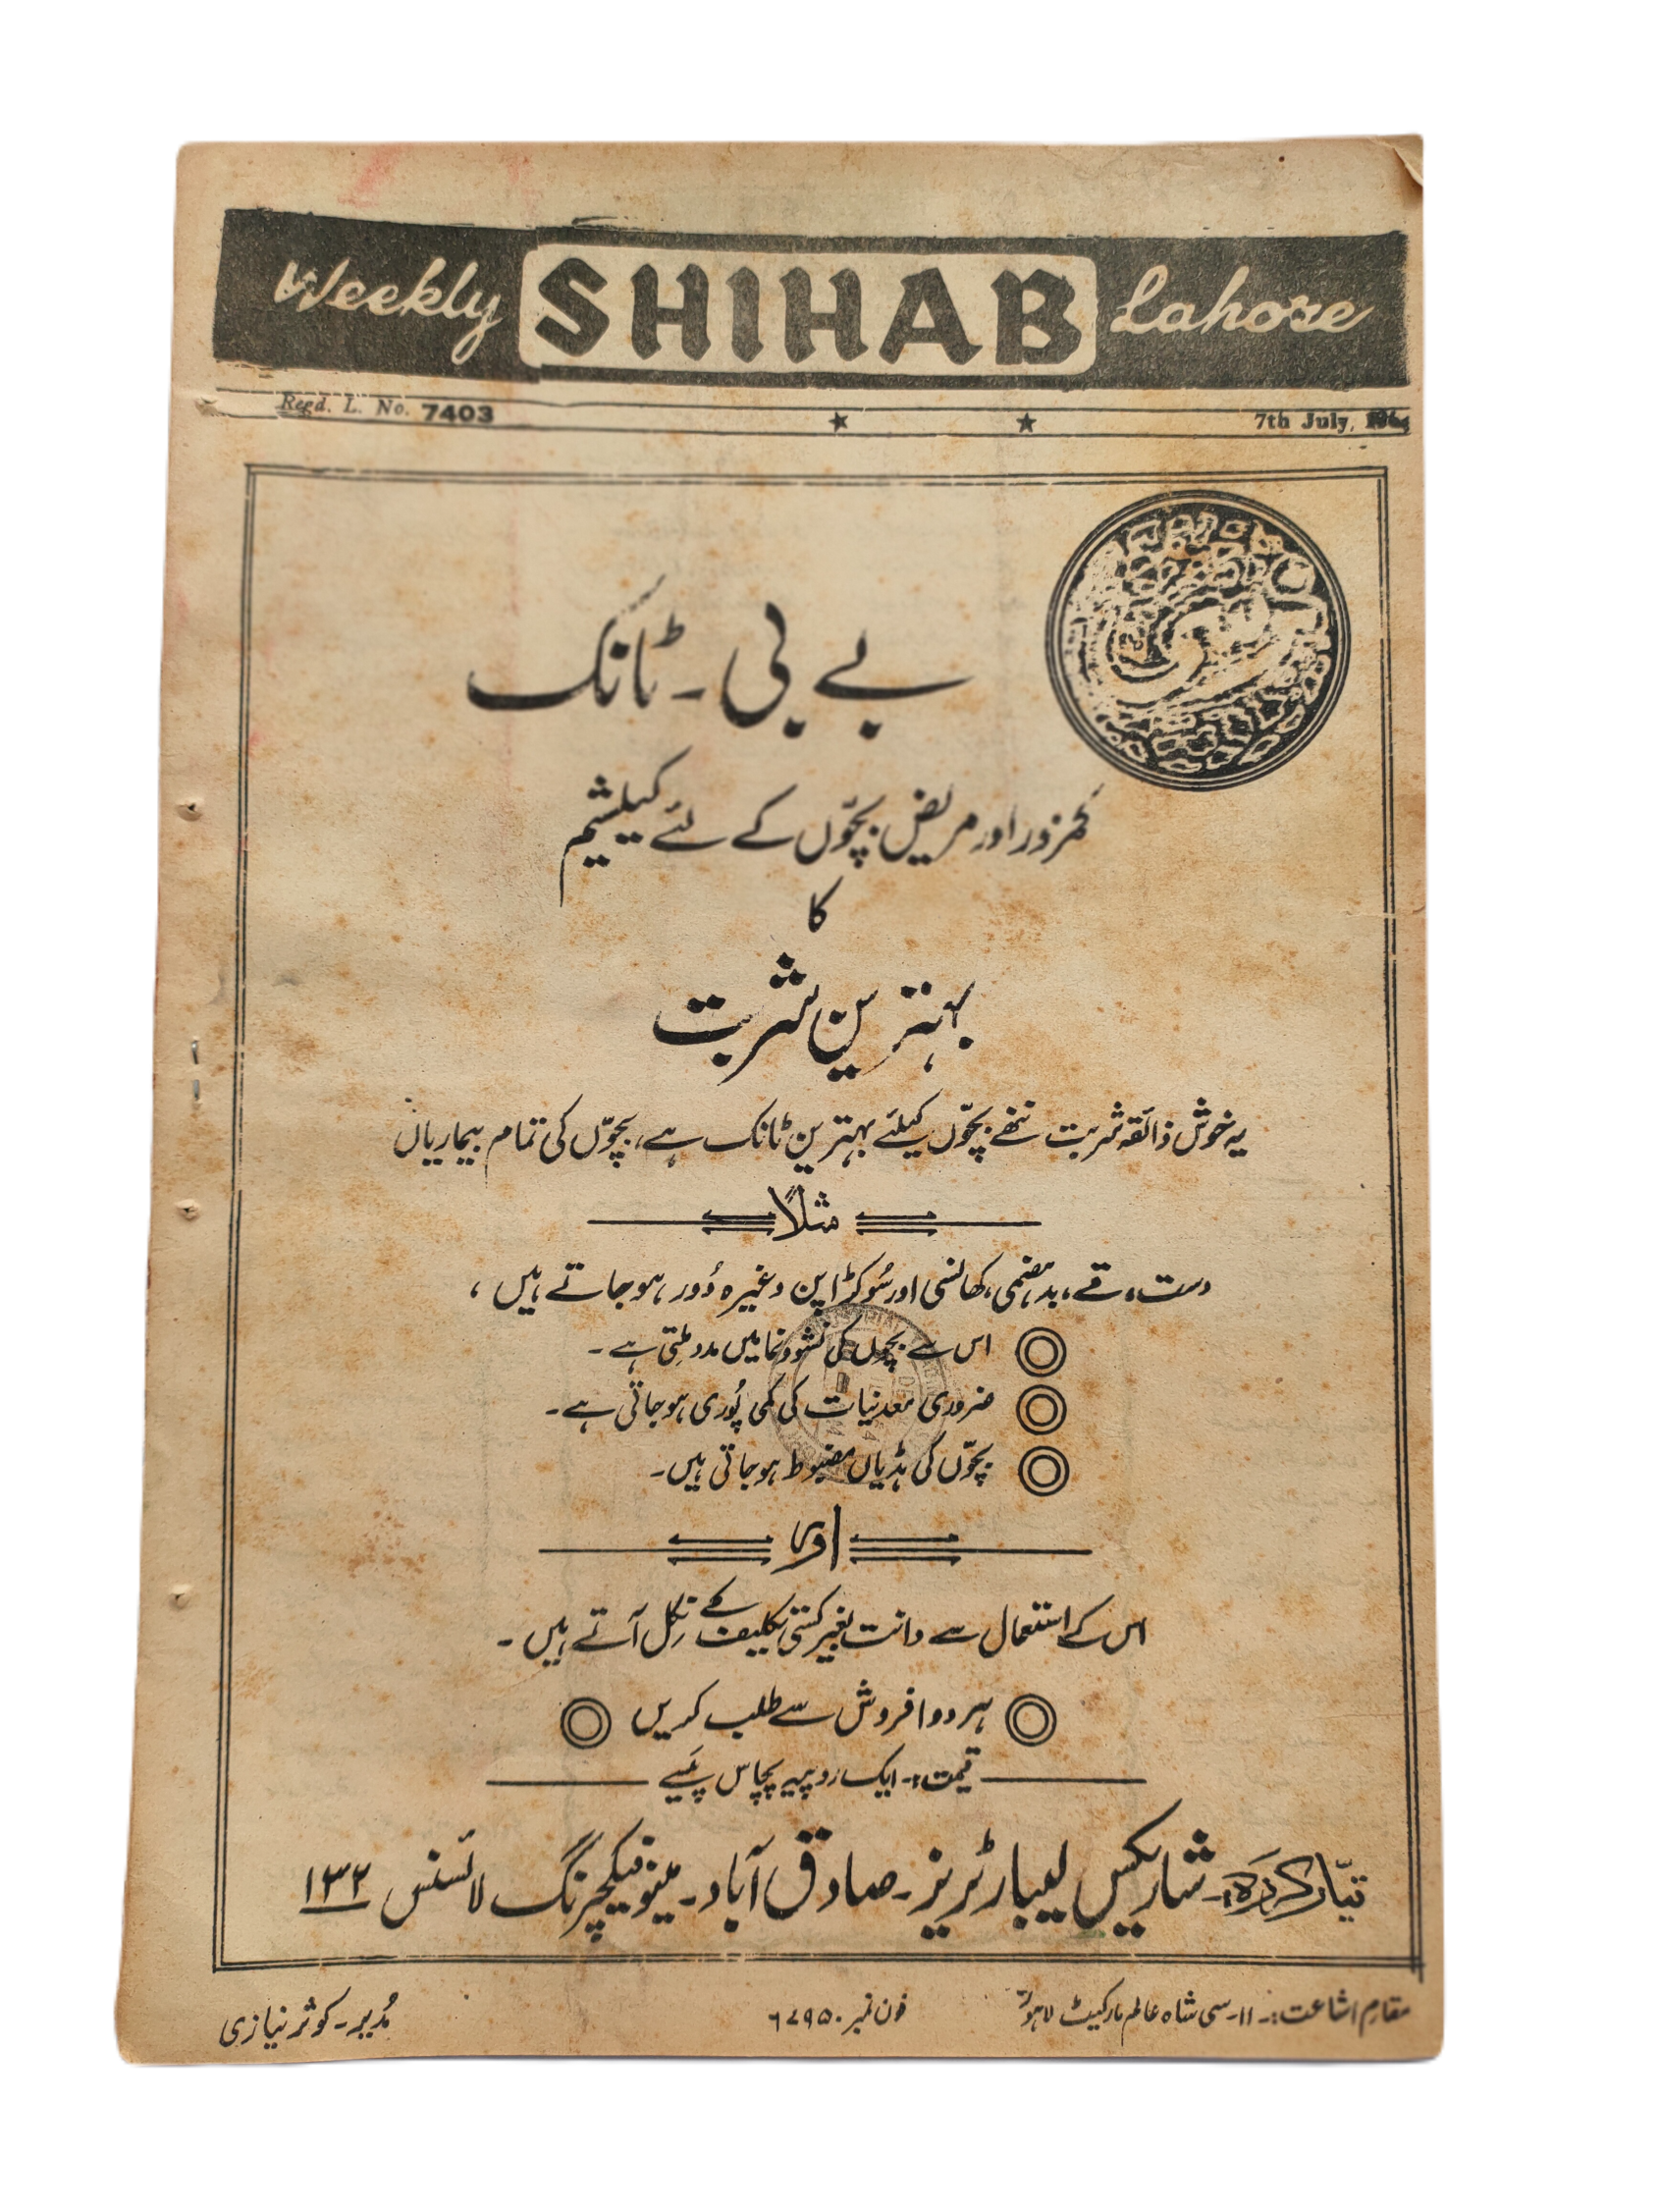 Weekly SHIHAB Lahore
Regd. L. No. 7403 7th July,
بے بی ۔ ٹانک
کمزور اور مریض بچّوں کے لئے کیلشیم
کا
بہترین شربت
یہ خوش ذائقہ شربت ننھے بچّوں کیلئے بہترین ٹانک ہے، بچّوں کی تمام بیماریاں
مثلاً
دست، قے، بدہضمی، کھانسی اور سُوکڑا پن وغیرہ دُور ہو جاتے ہیں،
اس سے بچوں کی نشوونما میں مدد ملتی ہے۔
ضروری معدنیات کی کمی پُوری ہو جاتی ہے۔
بچّوں کی ہڈیاں مضبوط ہو جاتی ہیں۔
اور
اس کے استعمال سے دانت بغیر کسی تکلیف کے نکل آتے ہیں۔
ہر دوا فروش سے طلب کریں
قیمت:۔ ایک روپیہ پچاس پیسے
تیّار کردہ:۔ شاریکس لیبارٹریز۔ صادق آباد۔ مینوفیکچرنگ لائسنس ۱۳۲
مقامِ اشاعت:۔ ۱۱۔سی شاہ عالم مارکیٹ لاہور فون نمبر ۶۷۹۵۰ مُدیر۔ کوثر نیازی